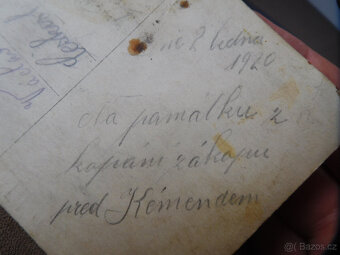 Václav
ne 2 ledna
1920
Na památku z
kopání zákopu
před Kémendem
© Bazos.cz